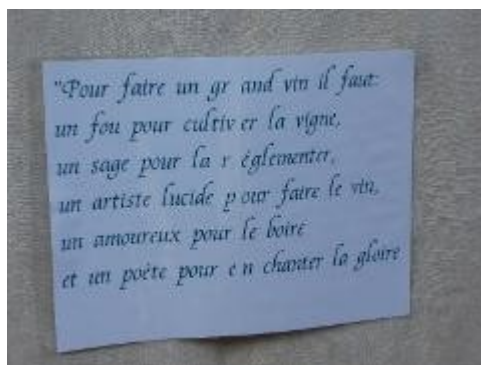 "Pour faire un gr and vin il faut:
un fou pour cultiv er la vigne,
un sage pour la r églementer,
un artiste lucide p our faire le vin,
un amoureux pour le boire
et un poète pour e n chanter la gloire